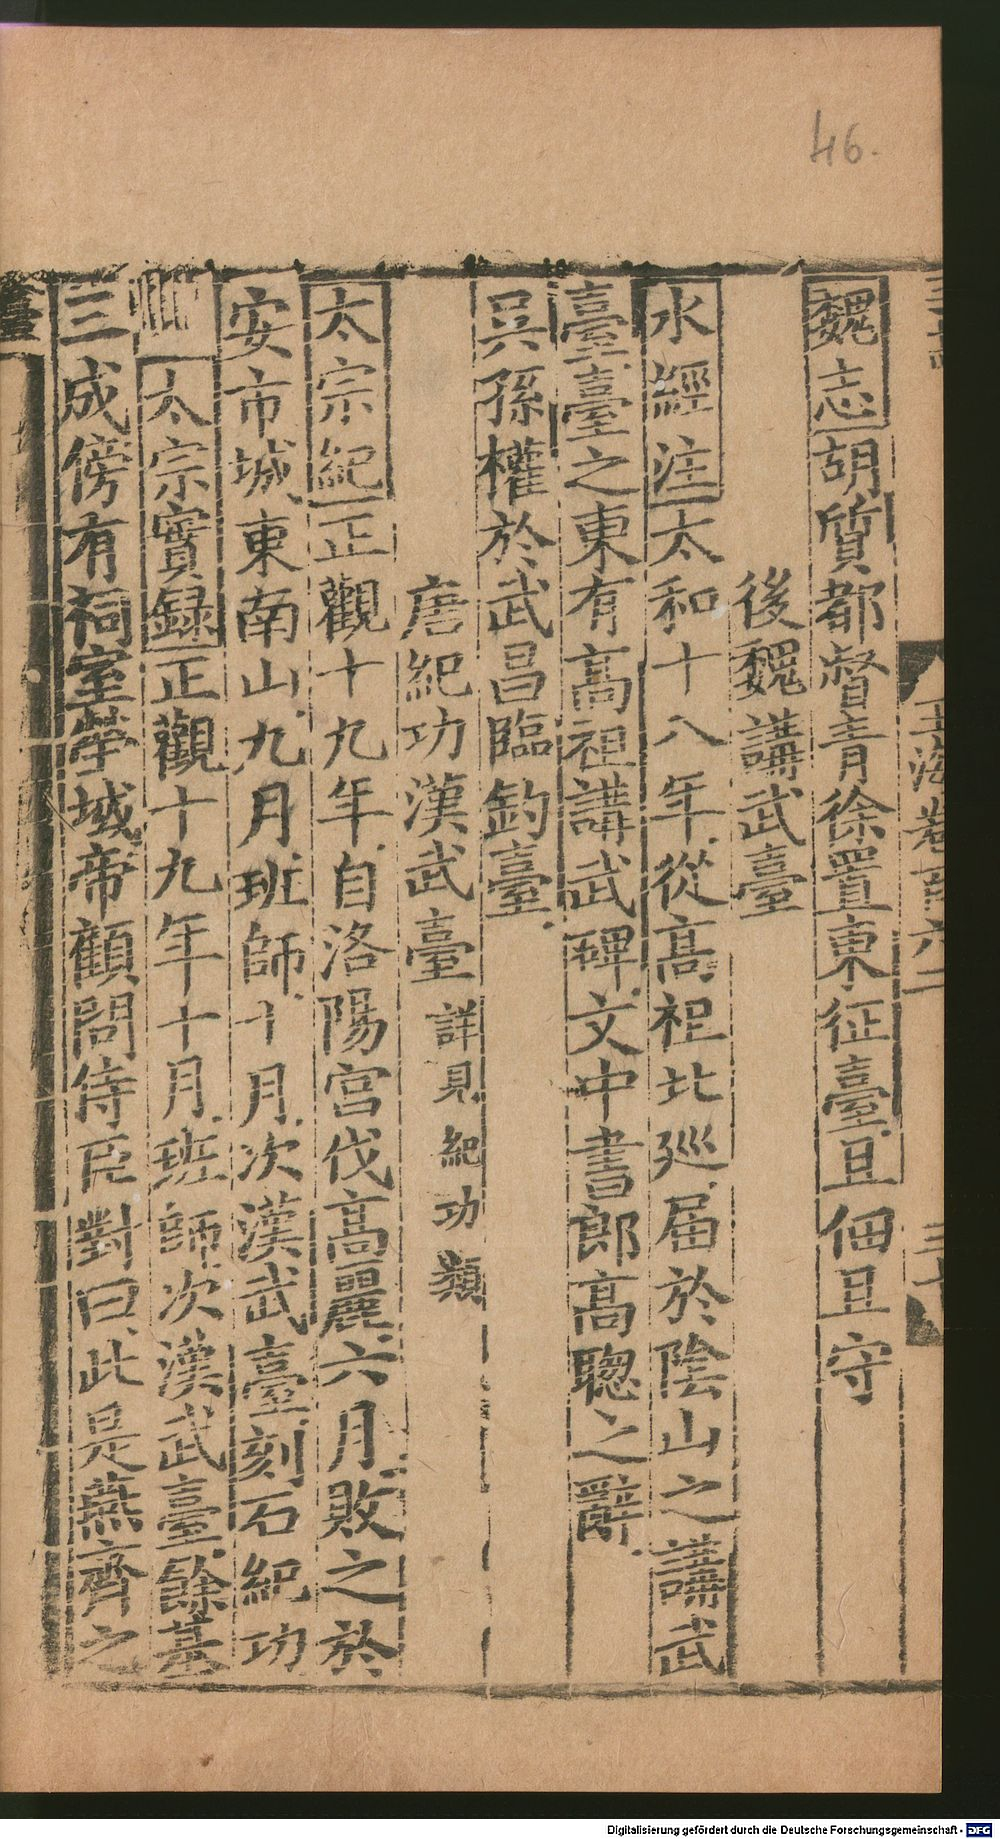 46.
玉海卷百六二
魏志胡質都督青徐置東征臺且佃且守
後魏講武臺
水經注太和十八年從高祖北廵届於陰山之講武
臺臺之東有高祖講武碑文中書郎高聦之辭
吳孫權於武昌臨釣臺
唐紀功漢武臺詳見紀功類
太宗紀正觀十九年自洛陽宫伐高麗六月敗之於
安市城東南山九月班師十月次漢武臺刻石紀功
太宗實録正觀十九年十月班師次漢武臺餘基
三成傍有祠室塋域帝顧問侍臣對曰此是燕齊之
Digitalisierung gefördert durch die Deutsche Forschungsgemeinschaft - DFG